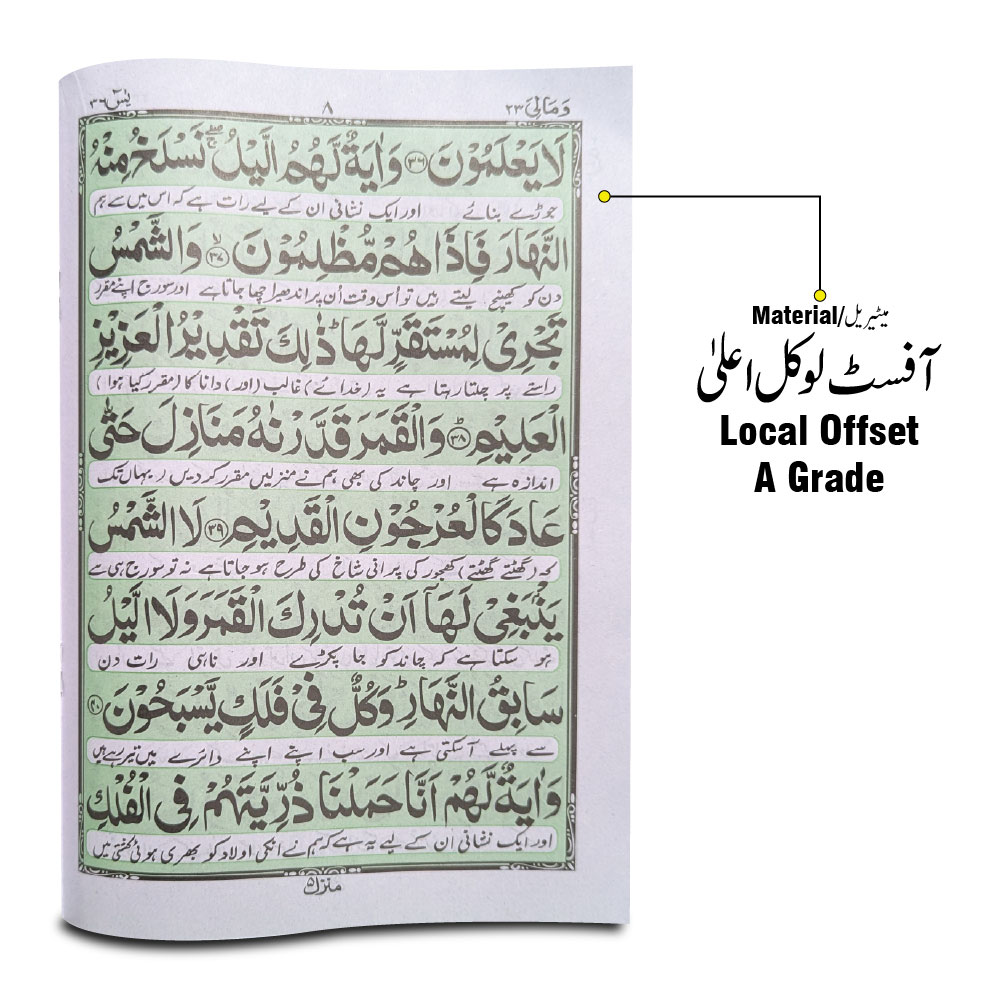 وَمَالِیَ ٢٣
٨
یٰسٓ ٣٦
لَا یَعْلَمُوْنَ ﴿٣٦﴾ وَاٰیَةٌ لَّهُمُ الَّیْلُ ۖۚ نَسْلَخُ مِنْهُ
جوڑے بنائے اور ایک نشانی ان کے لیے رات ہے کہ اس میں سے ہم
النَّهَارَ فَاِذَا هُمْ مُّظْلِمُوْنَ ﴿٣٧﴾ۙ وَالشَّمْسُ
دن کو کھینچ لیتے ہیں تو اُس وقت اُن پر اندھیرا چھا جاتا ہے اور سورج اپنے مقرر
تَجْرِیْ لِمُسْتَقَرٍّ لَّهَا ؕ ذٰلِكَ تَقْدِیْرُ الْعَزِیْزِ
راستے پر چلتا رہتا ہے یہ (خدائے) غالب (اور) دانا کا (مقرر کیا ہوا)
الْعَلِیْمِ ﴿٣٨﴾ؕ وَالْقَمَرَ قَدَّرْنٰهُ مَنَازِلَ حَتّٰی
اندازہ ہے اور چاند کی بھی ہم نے منزلیں مقرر کر دیں یہاں تک
عَادَ كَالْعُرْجُوْنِ الْقَدِیْمِ ﴿٣٩﴾ لَا الشَّمْسُ
کہ (گھٹتے گھٹتے) کھجور کی پرانی شاخ کی طرح ہو جاتا ہے نہ تو سورج ہی سے
یَنْۢبَغِیْ لَهَاۤ اَنْ تُدْرِكَ الْقَمَرَ وَلَا الَّیْلُ
ہو سکتا ہے کہ چاند کو جا پکڑے اور ناہی رات دن
سَابِقُ النَّهَارِ ؕ وَكُلٌّ فِیْ فَلَكٍ یَّسْبَحُوْنَ ﴿٤٠﴾
سے پہلے آسکتی ہے اور سب اپنے اپنے دائرے میں تیر رہے ہیں
وَاٰیَةٌ لَّهُمْ اَنَّا حَمَلْنَا ذُرِّیَّتَهُمْ فِی الْفُلْكِ
اور ایک نشانی ان کے لیے یہ ہے کہ ہم نے انکی اولاد کو بھری ہوئی کشتی میں
منزل ٥
Material/میٹیریل
آفسٹ لوکل اعلیٰ
Local Offset
A Grade